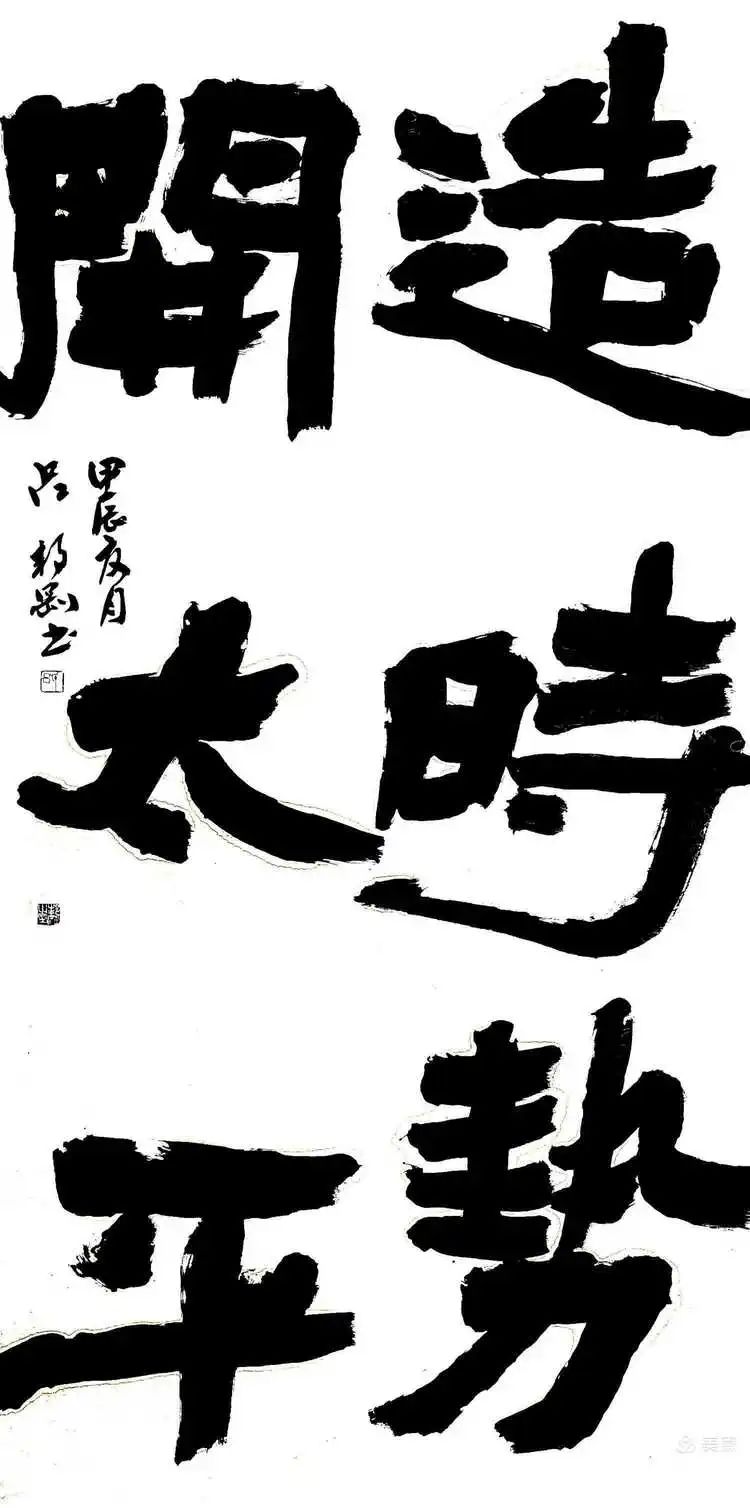 造時勢
開太平
甲辰夏月
呂
書